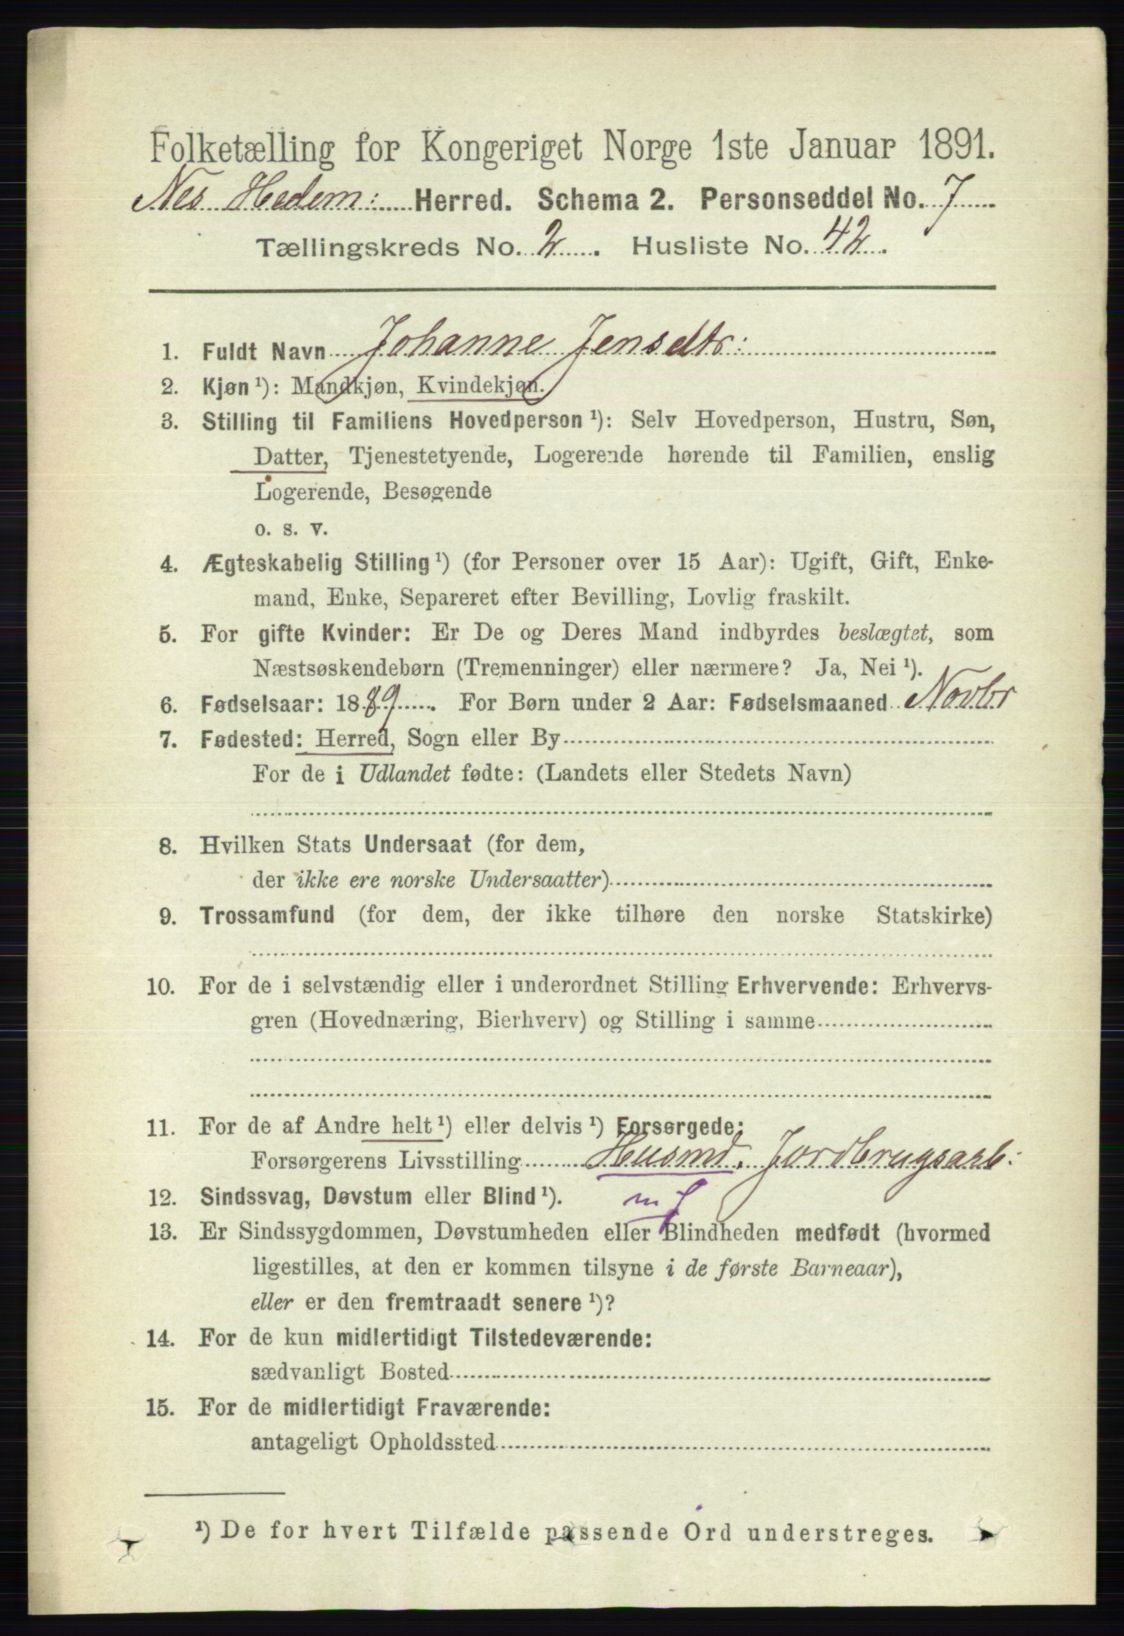 Folketælling for Kongeriget Norge 1ste Januar 1891.
Nes Hedem: Herred. Schema 2. Personseddel No. 7
Tællingskreds No. 2. Husliste No. 42.
1. Fuldt Navn Johanne Jensdtr:
2. Kjøn ¹): Mandkjøn, Kvindekjøn.
3. Stilling til Familiens Hovedperson ¹): Selv Hovedperson, Hustru, Søn,
Datter, Tjenestetyende, Logerende hørende til Familien, enslig
Logerende, Besøgende
o. s. v.
4. Ægteskabelig Stilling ¹) (for Personer over 15 Aar): Ugift, Gift, Enke-
mand, Enke, Separeret efter Bevilling, Lovlig fraskilt.
5. For gifte Kvinder: Er De og Deres Mand indbyrdes beslægtet, som
Næstsøskendebørn (Tremenninger) eller nærmere? Ja, Nei ¹).
6. Fødselsaar: 1889. For Børn under 2 Aar: Fødselsmaaned Novbr
7. Fødested: Herred, Sogn eller By
For de i Udlandet fødte: (Landets eller Stedets Navn)
8. Hvilken Stats Undersaat (for dem,
der ikke ere norske Undersaatter)
9. Trossamfund (for dem, der ikke tilhøre den norske Statskirke)
10. For de i selvstændig eller i underordnet Stilling Erhvervende: Erhvervs-
gren (Hovednæring, Bierhverv) og Stilling i samme
11. For de af Andre helt ¹) eller delvis ¹) Forsørgede:
Forsørgerens Livsstilling Husmd. Jordbrugsarb:
12. Sindssvag, Døvstum eller Blind ¹). m J
13. Er Sindssygdommen, Døvstumheden eller Blindheden medfødt (hvormed
ligestilles, at den er kommen tilsyne i de første Barneaar),
eller er den fremtraadt senere ¹)?
14. For de kun midlertidigt Tilstedeværende:
sædvanligt Bosted
15. For de midlertidigt Fraværende:
antageligt Opholdssted
¹) De for hvert Tilfælde passende Ord understreges.